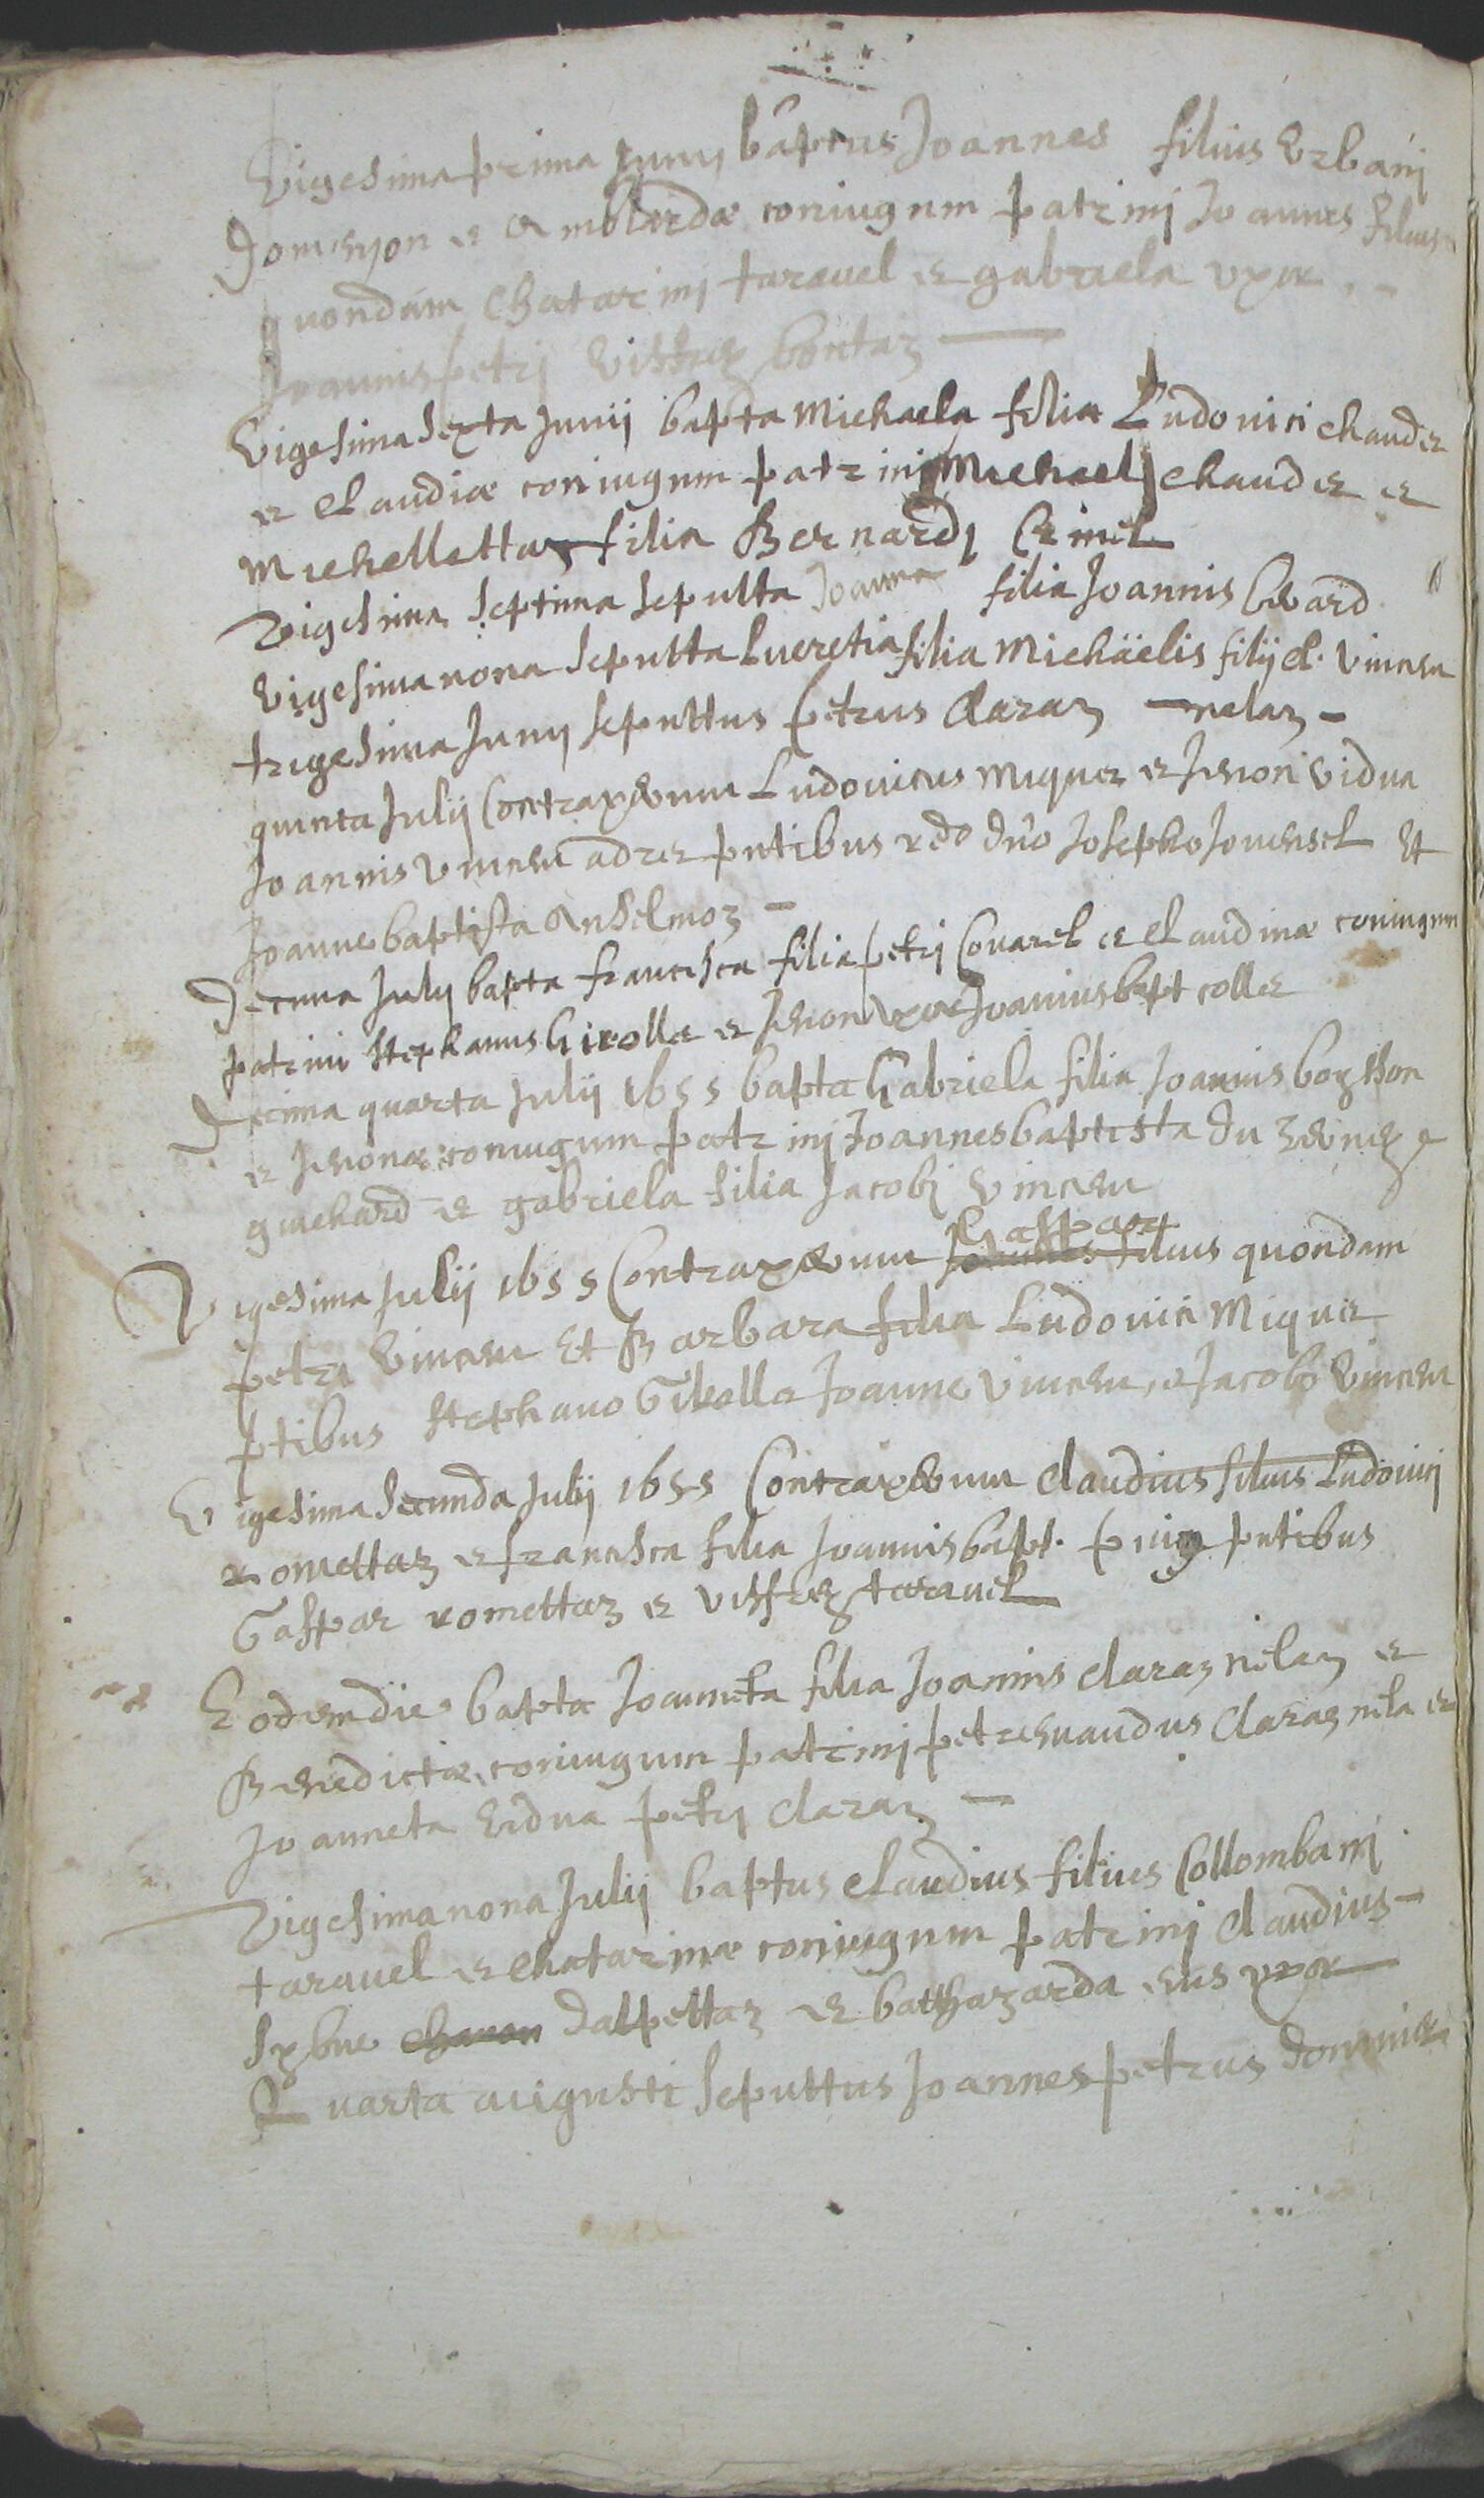 Vigesima prima Junij baptus Joannes filius Urbani
Domenjon et Amblardæ coniugum patrinj Joannes filius
quondam Chatarinj taravel et gabriela uxor
Joannispetrj Bontaz
Vigesima sexta Junij bapta Michaela filia Ludovici chaudet
et Claudiæ coniugum patrinj Michael chaudet et
Michelletta filia Bernardj
Vigesima septima sepulta Joanna filia Joannis
Vigesima nona sepulta Lucretia filia Michäelis filij cl. vincen
trigesima Junij sepultus petrus claraz - nelaz -
quinta Julij Contraxerunt Ludovicus miquet et Jenon vidua
Joannis vincen adret pntibus rdo dno Josepho Jovensel et
Joanne baptista Anselmoz -
Decima Julij bapta francisca filia petrj Covarel et Claudinæ coniugum
patrini Stephanus Girollet et Jenon uxor Joannis bapt collet
Decima quarta Julij 1655 bapta Gabriela filia Joannis bozshon
et Jenonæ coniugum patrinj Joannes baptista du
guichard et gabriela filia Jacobj vincen
Vigesima Julij 1655 Contraxerunt Joannes Gaspar filius quondam
petri vincen et Barbara filia Ludovici Miquet
ptibus Stephano Girollet Joanne vincen, et Jacobo vincen
Vigesima secunda Julij 1655 Contraxerunt claudius filius Ludovici
romettaz et francisca filia Joannis bapt. pntibus
Gaspar romettaz et taravel
Eodem die bapta Joanneta filia Joannis claraz nelaz et
Benedictæ coniugum patrinj petrus claraz nela et
Joanneta vidua petrj claraz -
Vigesima nona Julij baptus Claudius filius Collombanj
taravel et chatarinæ coniugum patrinj claudius -
dalpettaz et balthazarda eius uxor
Quarta augusti sepultus Joannes petrus